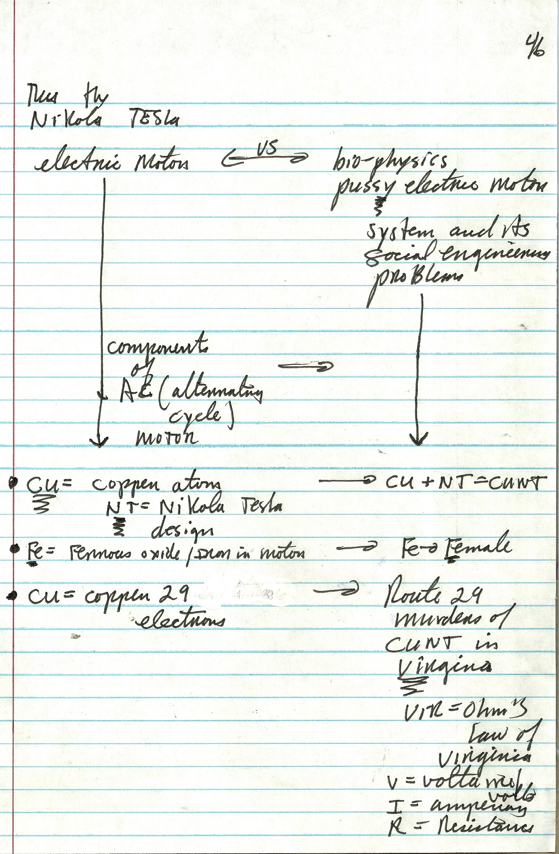 4/6
Thus the
Nikola TESla
electric Motor
VS
bio-physics
pussy electric motor
system and its
social engineering
proBlems
components
of
AC (alternating
cycle)
motor
CU = copper atom
CU + NT = CUNT
NT = Nikola Tesla
design
Fe = Ferrous oxide / Iron in motor
Fe → Female
CU = copper 29
electrons
Route 29
murders of
CUNT in
Virginia
VIR = Ohm's
law of
Virginia
V = voltage
volts
I = amperage
R = Resistance